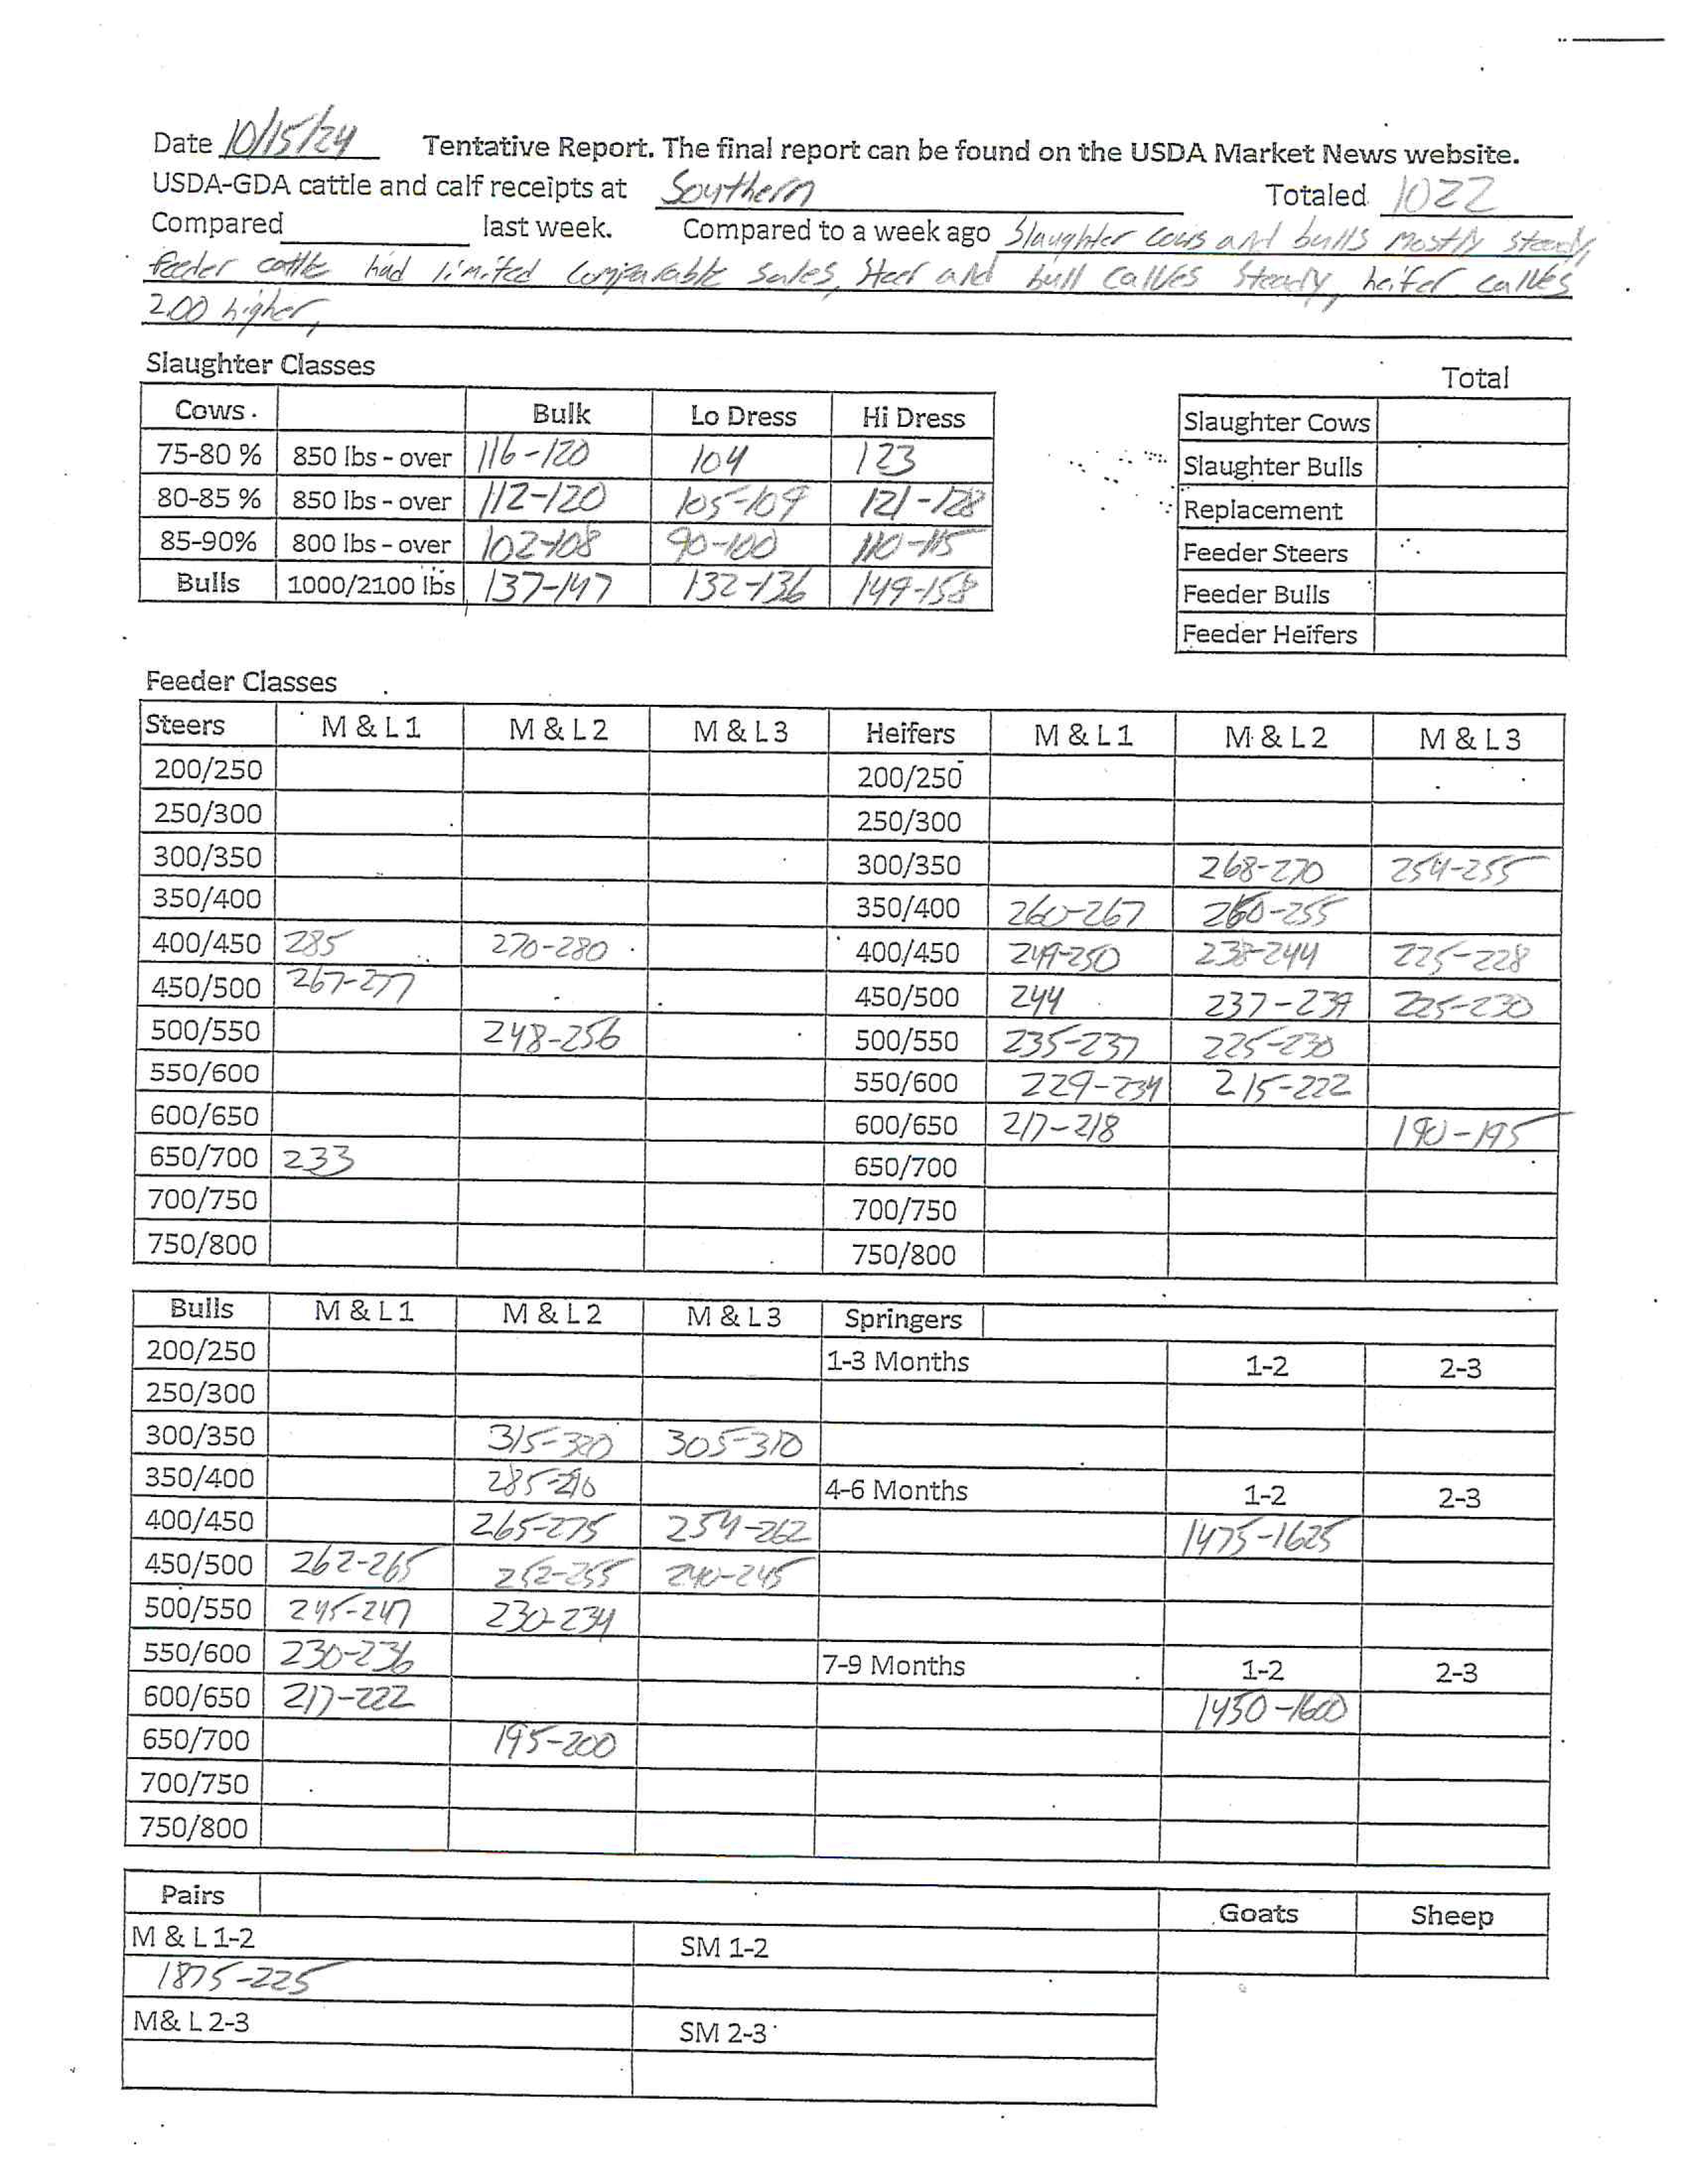 Date 10/15/24 Tentative Report. The final report can be found on the USDA Market News website.
USDA-GDA cattle and calf receipts at Southern Totaled 1022
Compared last week. Compared to a week ago Slaughter cows and bulls mostly steady,
feeder cattle had limited comparable sales, steer and bull calves steady, heifer calves
2.00 higher,
Slaughter Classes
Total
Cows. Bulk Lo Dress Hi Dress
75-80 % 850 lbs - over 116-120 104 123
80-85 % 850 lbs - over 112-120 105-109 121-128
85-90% 800 lbs - over 102-108 90-100 110-115
Bulls 1000/2100 lbs 137-147 132-136 149-158
Slaughter Cows
Slaughter Bulls
Replacement
Feeder Steers
Feeder Bulls
Feeder Heifers
Feeder Classes
Steers M & L 1 M & L 2 M & L 3 Heifers M & L 1 M & L 2 M & L 3
200/250 200/250
250/300 250/300
300/350 300/350 268-270 254-255
350/400 350/400 260-267 -255
400/450 285 270-280 400/450 249-250 238-244 225-228
450/500 267-277 450/500 244 237-239 225-230
500/550 248-256 500/550 235-237 225-230
550/600 550/600 229-234 215-222
600/650 600/650 217-218 190-195
650/700 233 650/700
700/750 700/750
750/800 750/800
Bulls M & L 1 M & L 2 M & L 3 Springers
200/250 1-3 Months 1-2 2-3
250/300
300/350 315-320 305-310
350/400 285-290 4-6 Months 1-2 2-3
400/450 265-275 254-262 1475-1625
450/500 262-265 252-255 240-245
500/550 245-247 230-234
550/600 230-236 7-9 Months 1-2 2-3
600/650 217-222 1450-1600
650/700 195-200
700/750
750/800
Pairs Goats Sheep
M & L 1-2 SM 1-2
1875-225
M& L 2-3 SM 2-3